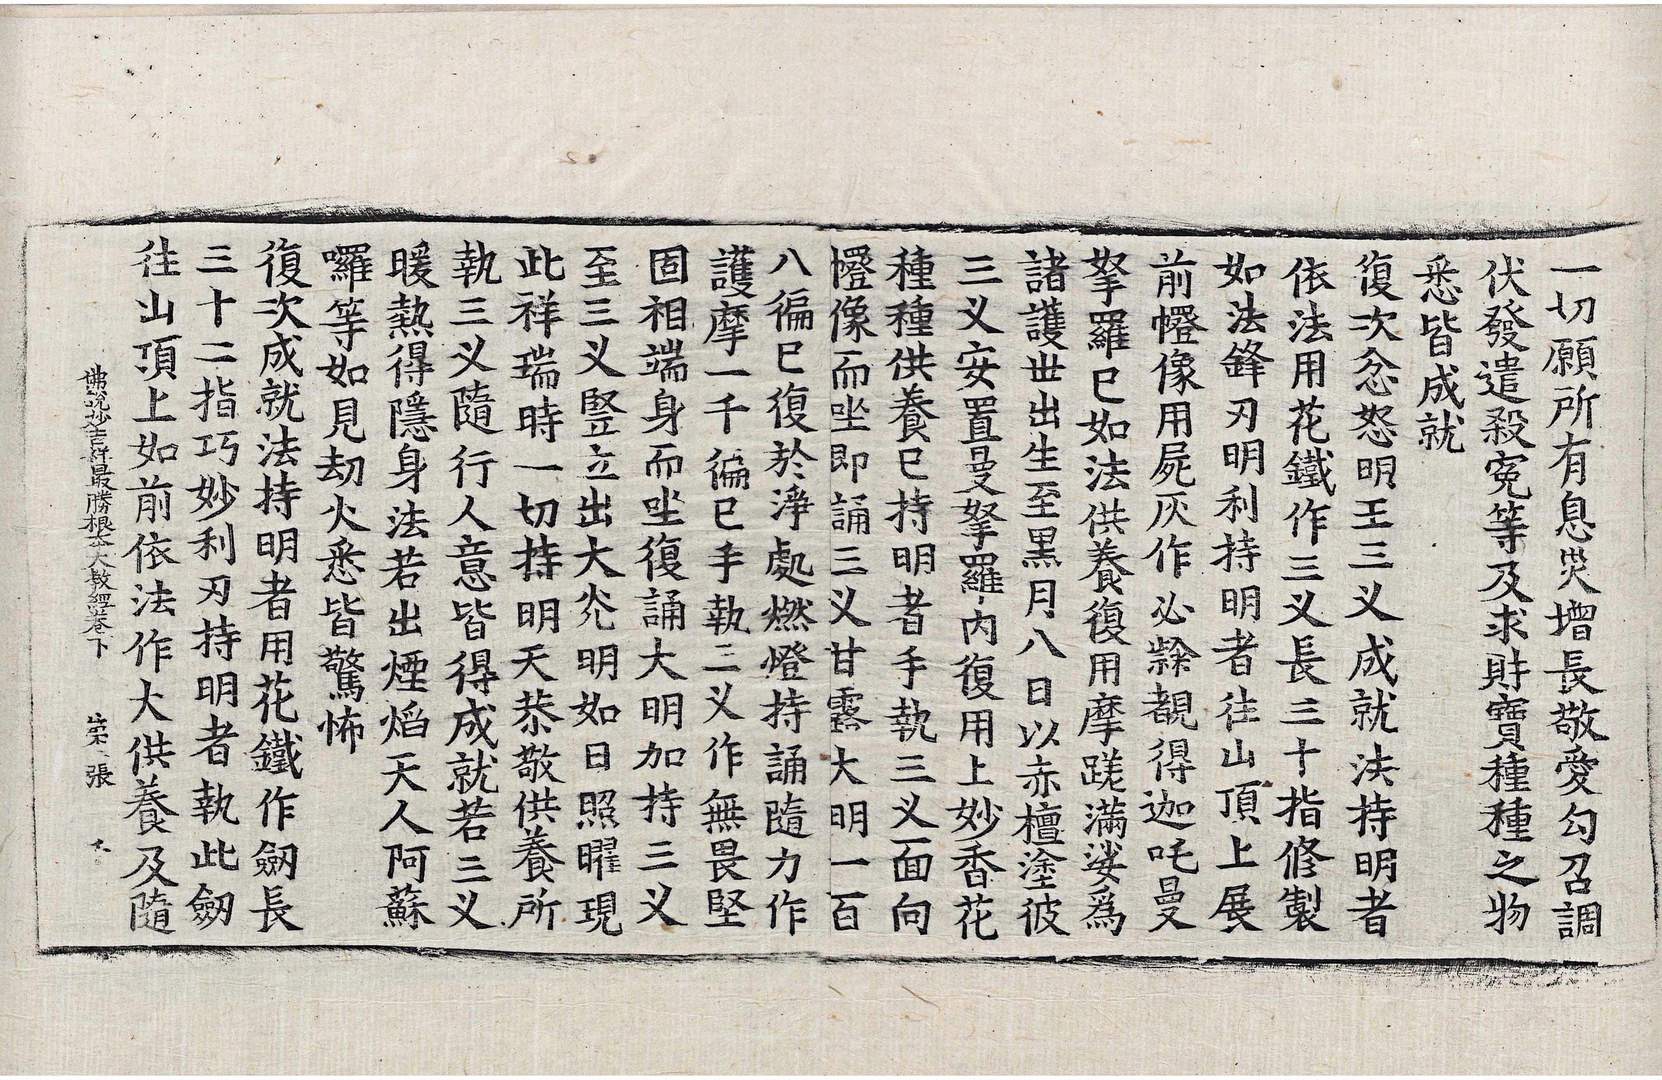 一切願所有息災增長敬愛勾召調
伏發遣殺寃等及求財寶種種之物
悉皆成就
復次忿怒明王三义成就法持明者
依法用花鐵作三义長三十指修製
如法鋒刃明利持明者往山頂上展
前㡧像用屍灰作必隸覩得迦吒曼
拏羅已如法供養復用摩蹉滿娑爲
諸護世出生至黑月八日以赤檀塗彼
三义安置曼拏羅內復用上妙香花
種種供養已持明者手執三义面向
㡧像而坐即誦三义甘露大明一百
八徧已復於淨處燃燈持誦隨力作
護摩一千徧已手執三义作無畏堅
固相端身而坐復誦大明加持三义
至三义竪立出大光明如日照曜現
此祥瑞時一切持明天恭敬供養所
執三义隨行人意皆得成就若三义
暖熱得隱身法若出煙焰天人阿蘇
囉等如見劫火悉皆驚怖
復次成就法持明者用花鐵作劒長
三十二指巧妙利刃持明者執此劒
往山頂上如前依法作大供養及隨
佛說妙吉祥最勝根本大教經卷下 張